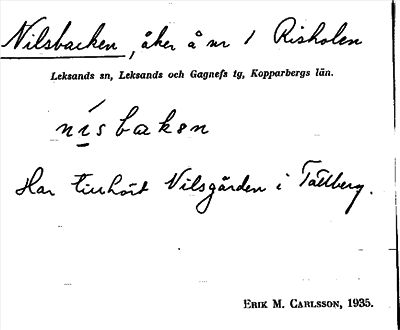 Nilsbacken, åker å nr 1 Risholen
Leksands sn, Leksands och Gagnefs tg, Kopparbergs län.
ni̠sbakən
Har tillhört Nilsgården i Tällberg.
ERIK M. CARLSSON, 1935.